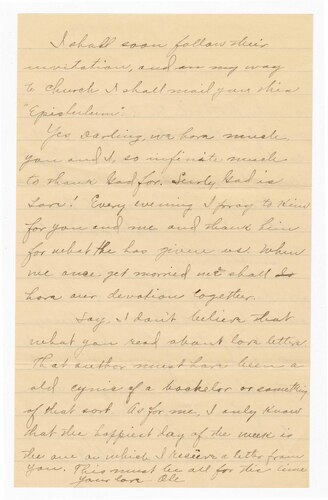 I shall soon follow their
invitation, and on my way
to church I shall mail you this
"Epistulum".
Yes Darling, we have much
you and I, so infinite much
to thank God for. Surely, God is
Love! Every evening I pray to Him
for you and me and thank him
for what He has given us. When
we once get married we shall
have our devotion together.
Say, I don't believe that
what you read about love letter
That author must have been a
old cynic of a bachelor or something
of that sort. As for me, I only know
that the happiest day of the week is
the one on which I receive a letter from
you. This must be all for this time
Your love Ole